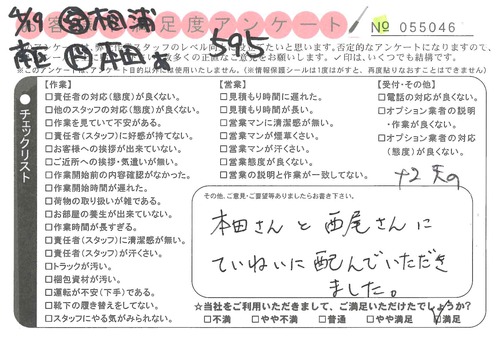 4/19 営 相浦
お客様満足度アンケート
No 055046
南区 作 本田
595
このアンケートは、弊社スタッフのレベル向上を
したいと思います。否定的なアンケートになりますので、
数多くの正直なご意見をお願いします。✓印は、いくつでも結構です。
※このアンケートは、アンケート目的以外に使用いたしません。(※情報保護シールは1度はがすと、再度貼りなおすことはできません)
チェックリスト
【作業】
□責任者の対応(態度)が良くない。
□他のスタッフの対応(態度)が良くない。
□作業を見ていて不安がある。
□責任者(スタッフ)に好感が持てない。
□お客様への挨拶が出来ていない。
□ご近所への挨拶・気遣いが無い。
□作業開始前の内容確認がなかった。
□作業開始時間が遅れた。
□荷物の取り扱いが雑である。
□お部屋の養生が出来ていない。
□作業時間が長すぎる。
□責任者(スタッフ)に清潔感が無い。
□責任者(スタッフ)が汗くさい。
□トラックが汚い。
□梱包資材が汚い。
□運転が不安(下手)である。
□靴下の履き替えをしてない。
□スタッフにやる気がみられない。
【営業】
□見積もり時間に遅れた。
□見積もり時間が長い。
□営業マンに清潔感が無い。
□営業マンが煙草くさい。
□営業マンが汗くさい。
□営業態度が良くない。
□営業の説明と作業が一致してない。
【受付・その他】
□電話の対応が良くない。
□オプション業者の説明
・作業が良くない。
□オプション業者の対応
(態度)が良くない。
その他、ご意見・ご要望等ありましたらお書き下さい。
本田さんと西尾さんに
ていねいに配んでいただき
ました。
☆当社をご利用いただきまして、ご満足いただけたでしょうか?
□不満 □やや不満 □普通 □やや満足 ☑満足